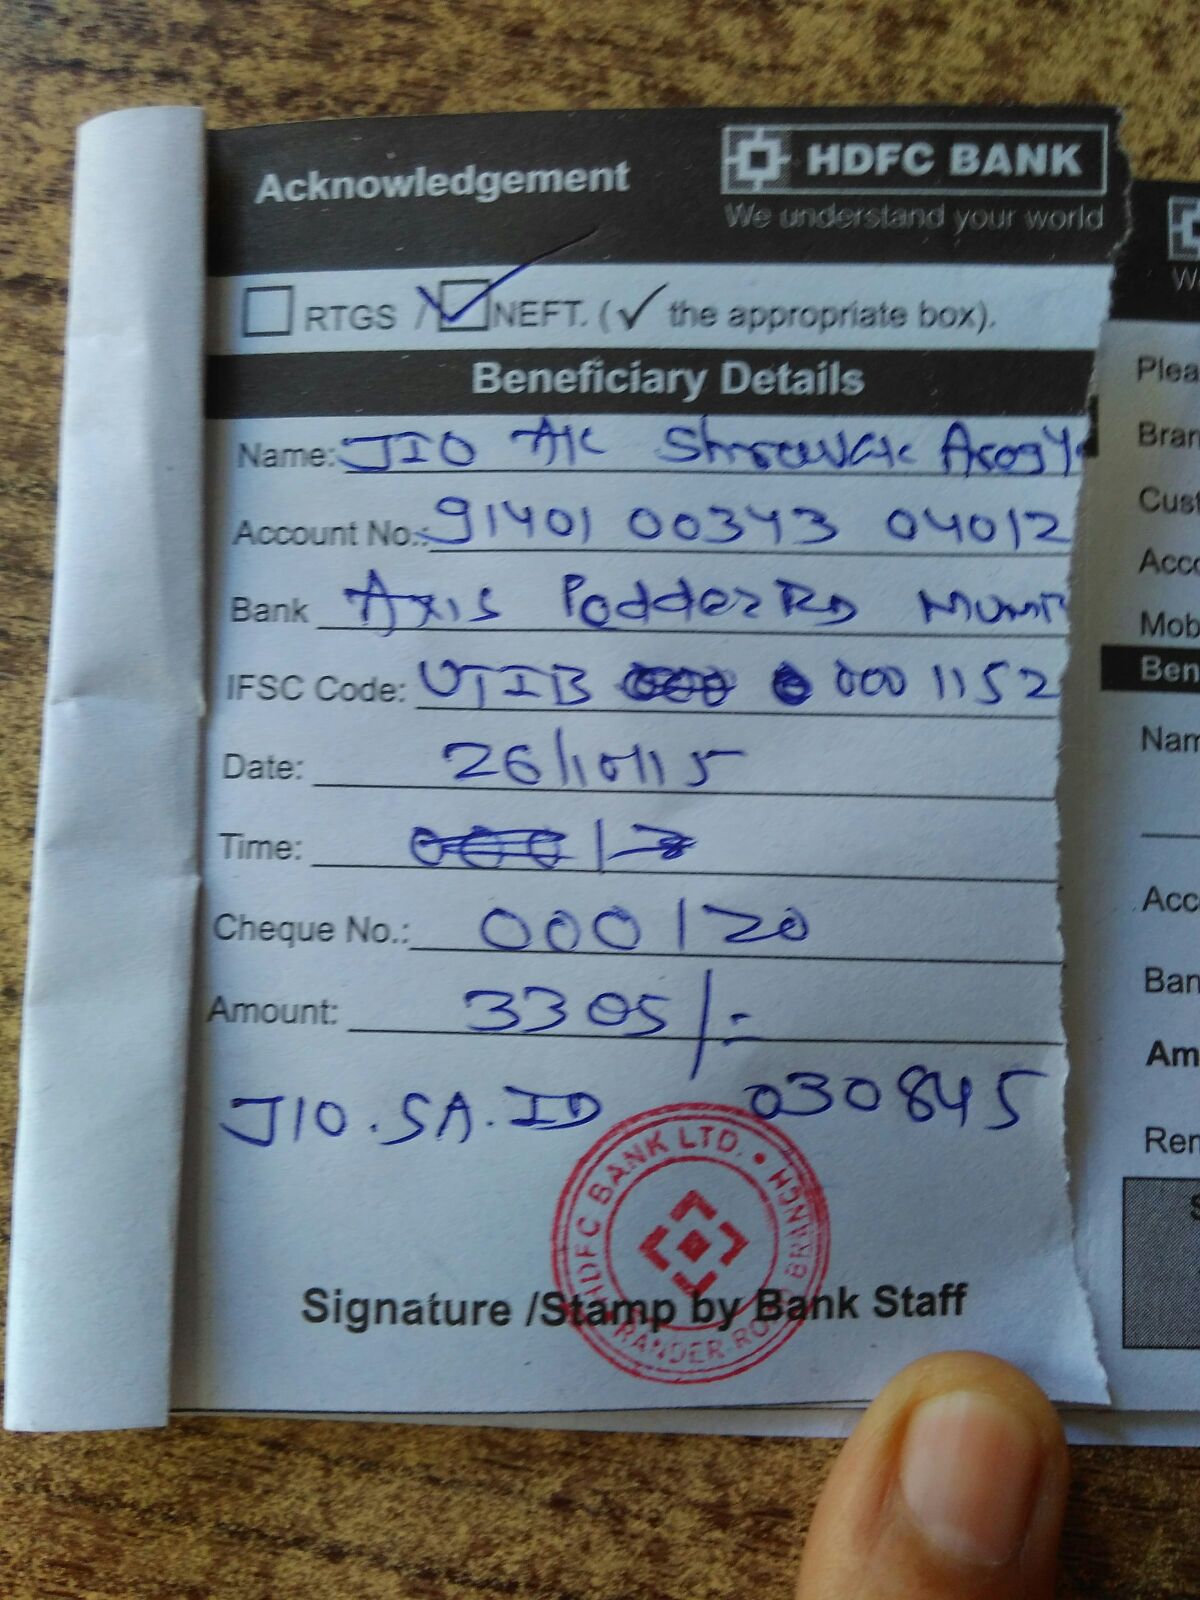 Acknowledgement
HDFC BANK
We understand your world
RTGS / NEFT. (✓ the appropriate box).
Beneficiary Details
Name: JIO A/c
Account No.: 91401 00343 04012
Bank Axis Pedder RD
IFSC Code: UTIB 000 1152
Date: 26/10/15
Time:
Cheque No.: 000120
Amount: 3305/-
JIO.SA.ID 030845
HDFC BANK LTD. • RANDER ROAD BRANCH
Signature /Stamp by Bank Staff
Plea
Bran
Cust
Acco
Mob
Ben
Nam
Acco
Ban
Am
Rem